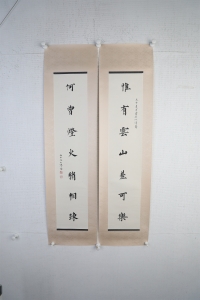 惟有雲山並可樂
何曾燈火稍相疎